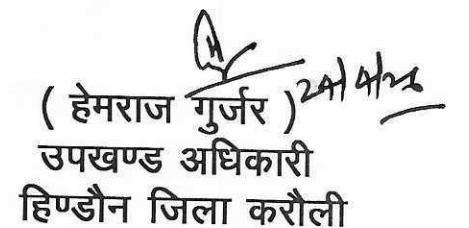 ( हेमराज गुर्जर ) 24/4/26
उपखण्ड अधिकारी
हिण्डौन जिला करौली